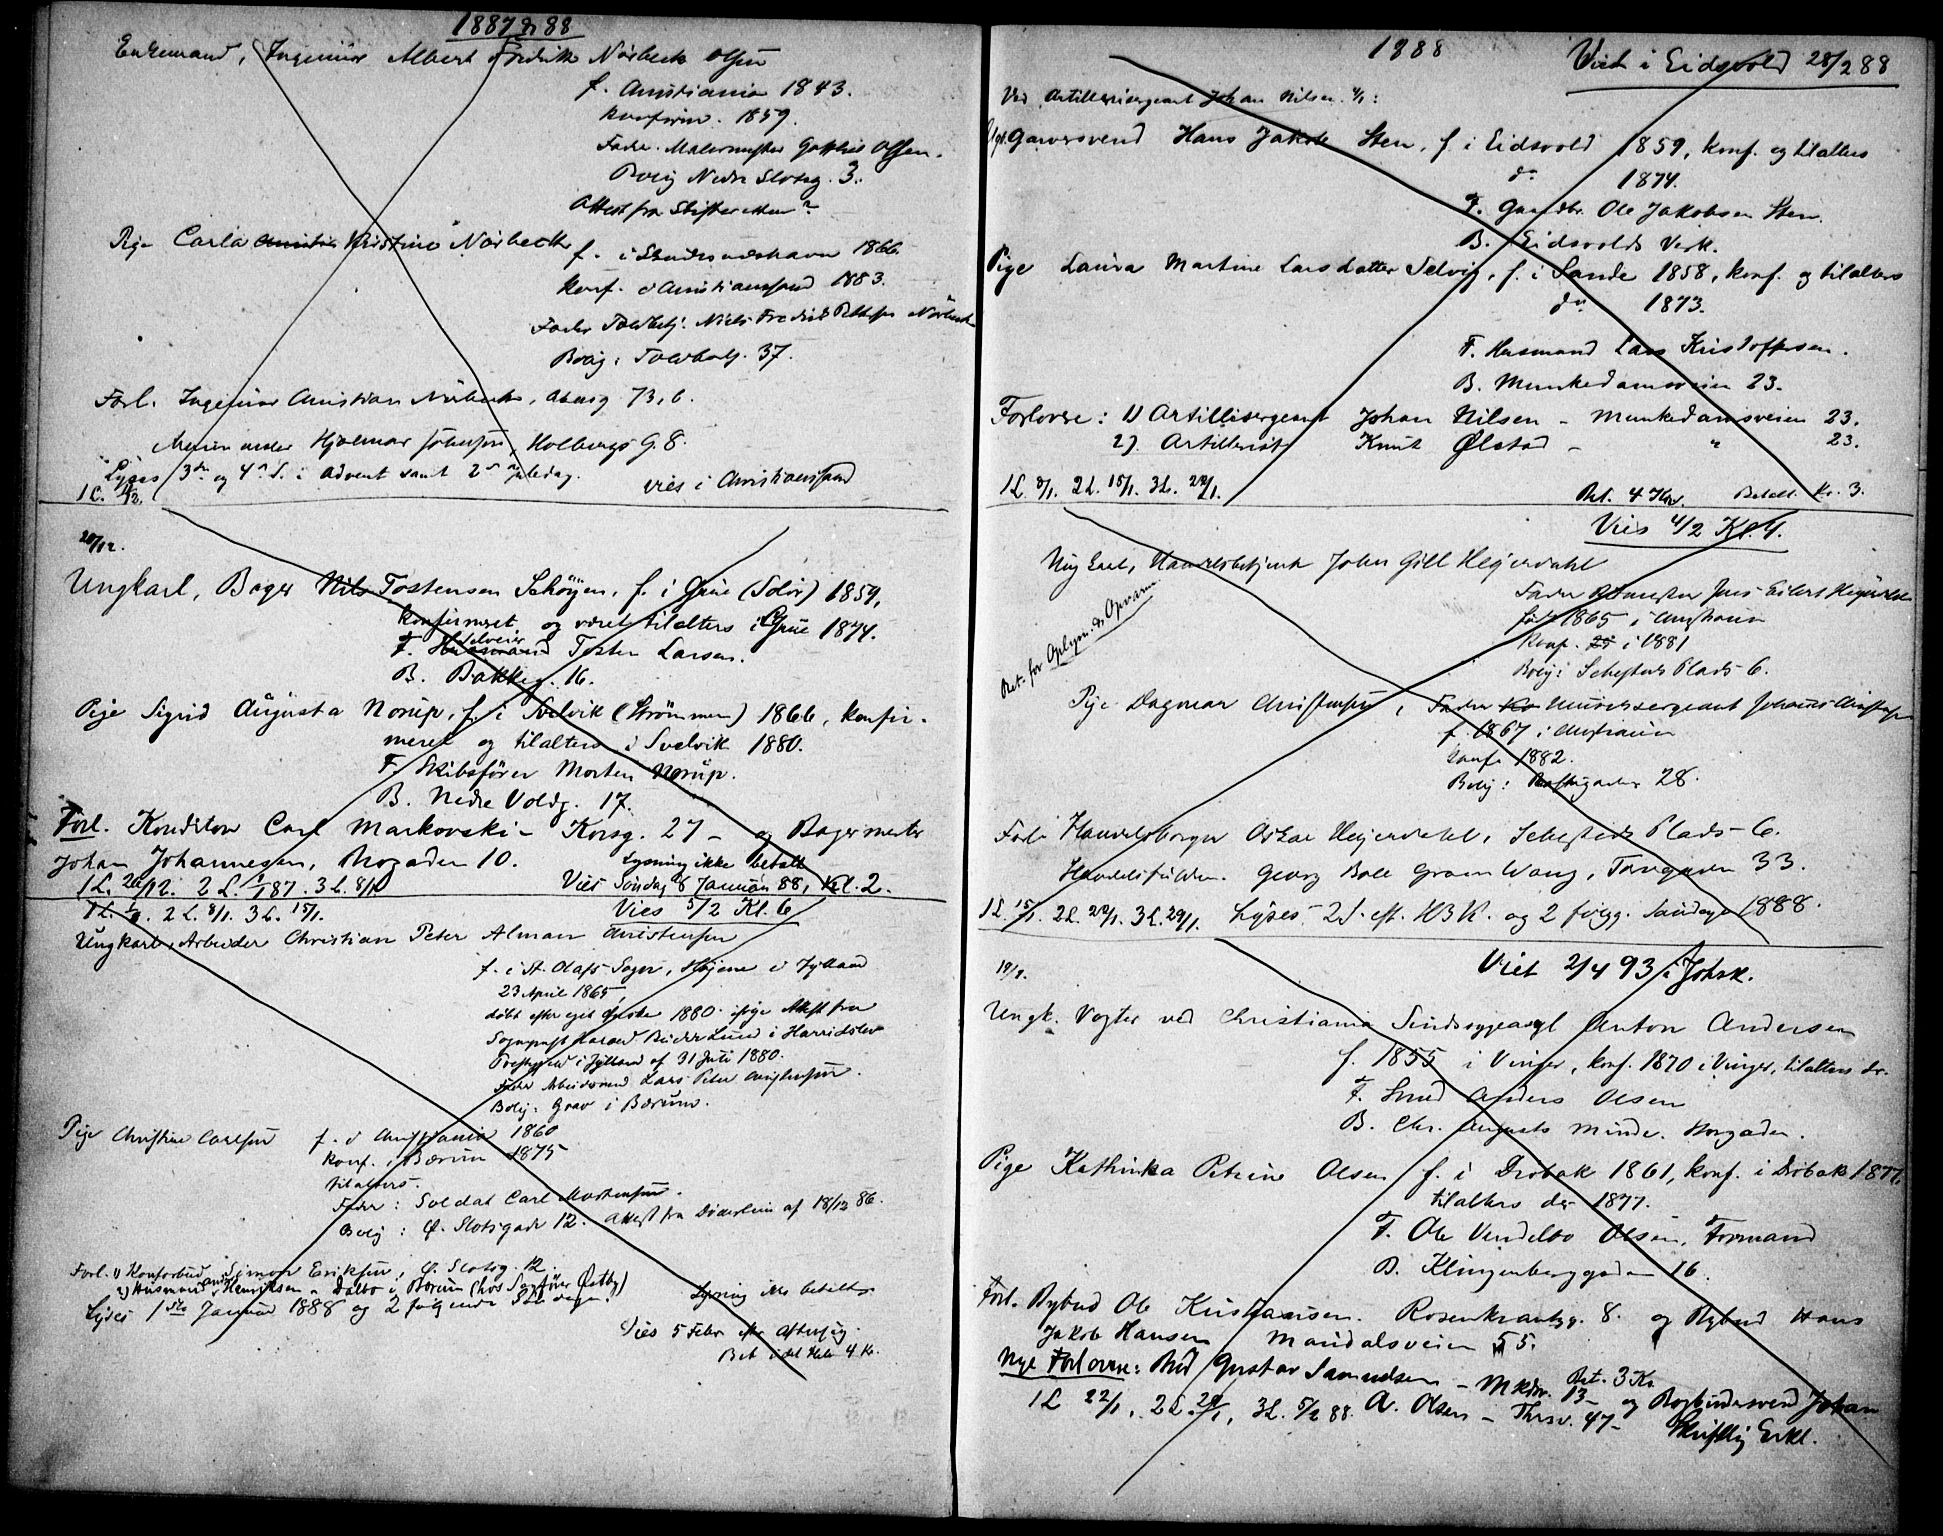 1887 & 88
Enkemand, Ingeniør Albert Fredrik Nørbeck Olsen
f. Christiania 1843.
konfirm. 1859.
Fader. Malermester Olsen.
Bolig Nedre Slotsg. 3.
Attest fra Skifteretten?
Pige Carla Kristine Nørbeck
f. i 1866.
konf. i Christianssand 1883.
Fader Niels Fredrik Nørbeck
Bolig: Toldbodg. 37.
Forl. Ingeniør Christian Nørbeck, 73, b.
Hjalmar Johnsen, Holbergs G. 8.
Lyses 3die og 4de S. i Advent samt 2den Juledag. Vies i Christianssand
1 L.
20/12.
Ungkarl, Bager Nils Tostensen Schøyen, f. i Grue (Solør) 1859,
konfirmeret og været tilalters i Grue 1874.
F. Selveier Tosten Larsen.
B. Bakkeg. 16.
Pige Sigrid Augusta Norup, f. i Svelvik (Strømmen) 1866, konfir-
meret og tilalters i Svelvik 1880.
F. Skibsfører Morten Norup.
B. Nedre Voldg. 17.
Forl. Konditor Carl Markovski - Korsg. 27 - og Bagermester
Johan Johannesen, 10. Lysning ikke betalt
1 L. 26/12. 2 L. 1/1 87. 3 L. 8/1 Vies Søndag 8 Januar 88, Kl. 2.
1 L. 1/1. 2 L. 8/1. 3 L. 15/1. Vies 5/2 Kl. 6
Ungkarl, Arbeider Christian Peter Alman Christensen
f. i St. Olafs Sogn, i Jylland
23 April 1865,
døbt efter eget Ønske 1880 ifølge Attest fra
Lund i Harridslev
Præstegjeld i Jylland af 31 Juli 1880.
Fader Arbeidsmand Lars Peter Christensen.
Bolig: Grav i Bærum.
Pige Christine Carlsen f. i Christiania 1860
konf. i Bærum 1875
tilalters.
Fader: Soldat Carl Mortensen.
Bolig: Ø. Slotsgade 12. Attest fra af 18/12 86.
Forl. 1) Kontorbud Simon Eriksen, Ø. Slotsg. 12.
2) Husmand Henriksen - Dalbo i Bærum (hos Sagfører Østby)
Lyses 1ste Januar 1888 og 2 følgende Søndage. Lysning ikke betalt
Vies 5 Febr efter Aftensg.
Bet. idet Hele 4 Kr.
1888 Viet i Eidsvold 28/2 88
Ved Artillerisergeant Johan Nilsen. 4/1:
Ugk. Garversvend Hans Jakob Sten, f. i Eidsvold 1859, konf. og tilalters
do 1874.
F. Gaardbr. Ole Jakobsen Sten.
B. Eidsvolds Verk.
Pige Laura Martine Larsdatter Selvig, f. i Sande 1858, konf. og tilalters
do 1873.
F. Husmand Lars Kristoffersen.
B. Munkedamsveien 23.
Forlovere: 1) Artillisergeant Johan Nilsen - Munkedamsveien 23.
2) Artillerist Knut Ølstad - " 23.
1 L. 8/1. 2 L. 15/1. 3 L. 22/1. Bet. 4 Kr. Betalt Kr. 3.
Vies 4/2 Kl. 4.
Ung Karl, Handelsbetjent John Gill Heyerdahl
Fader Jens Eilert Heyerdahl
født 1865 i
Konf. i 1881
Bolig: Sehesteds Plads 6.
Bet. for Oplysn. &
Pige Dagmar Christensen, Fader Mundersergeant Johannes Christensen
f. 1867 i Christiania
konf. 1882.
Bolig: 28.
Forl: Handelsborger Oskar Heyerdahl, Sehesteds Plads 6.
Georg Boll Gram Wang, Torvgaden 33.
1 L. 15/1. 2 L. 22/1. 3 L. 29/1. Lyses 2 S. eft. H3K. og 2 følgg. Søndage 1888.
Viet 2/4 93 i Johsk.
19/1.
Ungk. Vogter ved Christiania Sindssygeasyl Anton Andersen
f. 1855 i Vinger, konf. 1870 i Vinger, tilalters do.
F. Smed Anders Olsen
B. Chr. Augusts Minde. Storgaden.
Pige Kathinka Petrine Olsen f. i Drøbak 1861, konf. i Drøbak 1877,
tilalters der 1877.
F. Ole Vendelbo Olsen, Formand
B. Klingenberggaden 16.
Forl. Bybud Ole Kristiansen. Rosenkrantzg. 8. og Bybud Hans
Jakob Hansen Maridalsveien 55.
Nye Forlovere: Bud Gustav Samuelsen - Mkdv. 13 - Bet. 3 Kr og Johan
1 L 22/1, 2 L. 29/1, 3 L. 5/2 88. A. Olsen - Thrsv. 47 - Skriftlig Erkl.